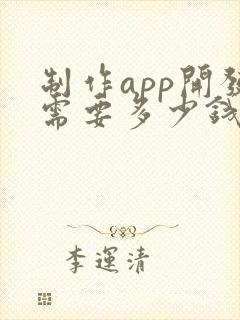 制作app開發
需要多少錢
李運清